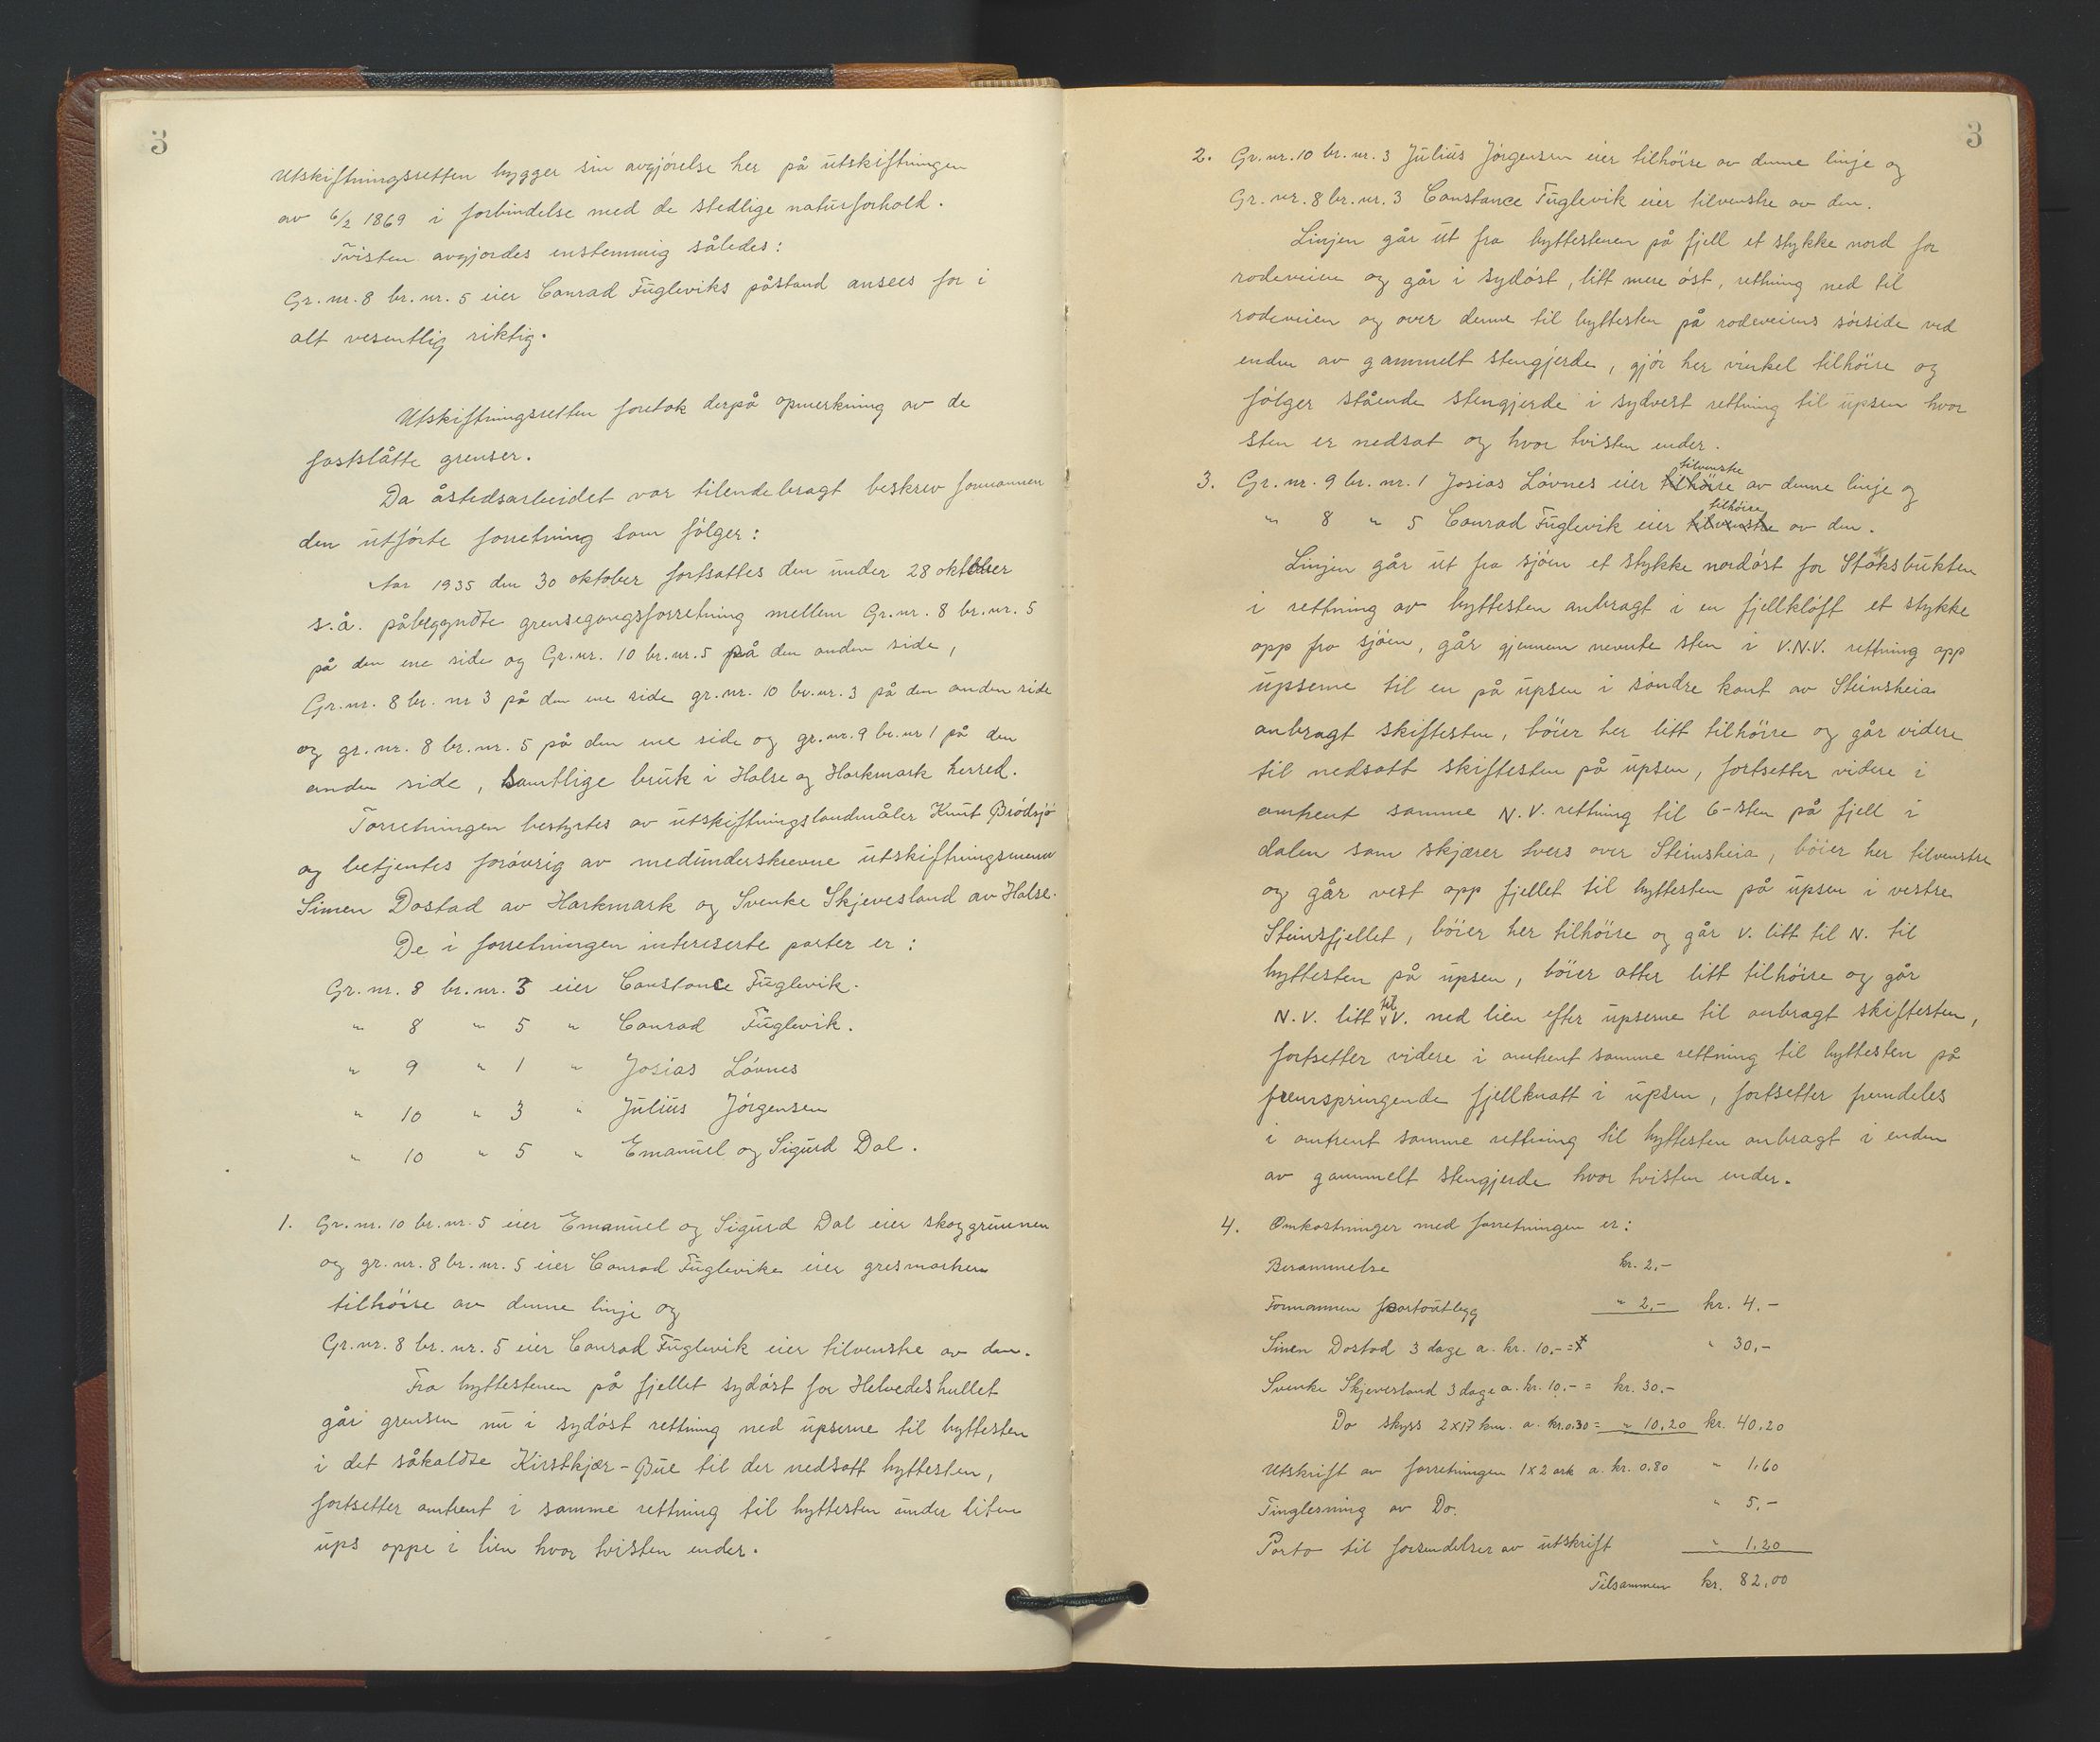 3
Utskiftningsretten bygger sin avgjörelse her på utskiftningen
av 6/2 1869 i forbindelse med de stedlige naturforhold.
Tvisten avgjordes enstemmig således:
Gr. nr. 8 br. nr. 5 eier Conrad Fugleviks påstand ansees for i
alt vesentlig riktig.
Utskiftningsretten foretok derpå opmerkning av de
fastslåtte grenser.
Da åstedsarbeidet var tilendebragt beskrev formannen
den utförte forretning som fölger:
År 1935 den 30 oktober fortsattes den under 28 oktober
s.å. påbegyndte grensegangsforretning mellem Gr. nr. 8 br. nr. 5
på den ene side og Gr. nr. 10 br. nr. 5 på den anden side,
Gr. nr. 8 br. nr 3 på den ene side gr. nr. 10 br. nr. 3 på den anden side
og gr. nr. 8 br. nr. 5 på den ene side og gr. nr. 9 br. nr 1 på den
anden side, samtlige bruk i Halse og Harkmark herred.
Forretningen bestyrtes av utskiftningslandmåler Knut Brödsjö
og betjentes forövrig av medunderskrevne utskiftningsmenn
Simen Dostad av Harkmark og Svenke Skjevesland av Halse.
De i forretningen intereserte parter er:
Gr. nr. 8 br. nr. 3 eier Constance Fuglevik.
" 8 " 5 " Conrad Fuglevik.
" 9 " 1 " Josias Lövnes
" 10 " 3 " Julius Jörgensen
" 10 " 5 " Emanuel og Sigurd Dal.
1. Gr. nr. 10 br. nr. 5 eier Emanuel og Sigurd Dal eier skoggrunnen
og gr. nr. 8 br. nr. 5 eier Conrad Fuglevike eier gresmarken
tilhöire av denne linje og
Gr. nr. 8 br. nr. 5 eier Conrad Fuglevik eier tilvenstre av den.
Fra byttestenen på fjellet sydöst for Helvedeshullet
går grensen nu i sydöst rettning ned upserne til byttesten
i det såkaldte Kirstkjær-Bue til der nedsatt byttesten,
fortsetter omtrent i samme rettning til byttesten under liten
ups oppe i lien hvor tvisten ender.
3
2. Gr. nr. 10 br. nr. 3 Julius Jörgensen eier tilhöire av denne linje og
Gr. nr. 8 br. nr. 3 Constance Fuglevik eier tilvenstre av den.
Linjen går ut fra byttestenen på fjell et stykke nord for
rodeveien og går i sydöst, litt mere öst, rettning ned til
rodeveien og over denne til byttesten på rodeveiens sörside ved
enden av gammelt stengjerde, gjör her vinkel tilhöire og
fölger stående stengjerde i sydvest rettning til upsen hvor
sten er nedsat og hvor tvisten ender.
tilvenstre
3. Gr. nr. 9 br. nr. 1 Josias Lövnes eier tilhöire av denne linje og
tilhöire
" 8 " 5 Conrad Fuglevik eier tilvenstre av den.
Linjen går ut fra sjöen et stykke nordöst for Stoksbukten
i rettning av byttesten anbragt i en fjellklöft et stykke
opp fra sjöen, går gjennem nevnte sten i V.N.V. rettning opp
upserne til en på upsen i söndre kant av Steinsheia
anbragt skiftesten, böier her litt tilhöire og går videre
til nedsatt skiftesten på upsen, fortsetter videre i
omtrent samme N.V. rettning til 6-sten på fjell i
dalen som skjærer tvers over Steinsheia, böier her tilvenstre
og går vest opp fjellet til byttesten på upsen i vestre
Steinsfjellet, böier her tilhöire og går V. litt til N. til
byttesten på upsen, böier atter litt tilhöire og går
N.V. litt til V. ned lien efter upserne til anbragt skiftesten,
fortsetter videre i omtrent samme rettning til byttesten på
fremspringende fjellknatt i upsen, fortsetter fremdeles
i omtrent samme rettning til byttesten anbragt i enden
av gammelt stengjerde hvor tvisten ender.
4. Omkostninger med forretningen er:
Berammelse kr. 2,-
Formannen portoutlegg " 2,- kr. 4,-
Simen Dostad 3 dage a. kr. 10,- = " 30,-
Svenke Skjevesland 3 dage a. kr. 10,- = kr. 30,-
Do skyss 2x17 km. a. kr. 0.30 = " 10,20 kr. 40,20
Utskrift av forretningen 1x2 ark a. kr. 0,80 " 1,60
Tinglesning av Do. " 5,-
Porto til forsendelser av utskrift " 1,20
Tilsammen kr. 82,00